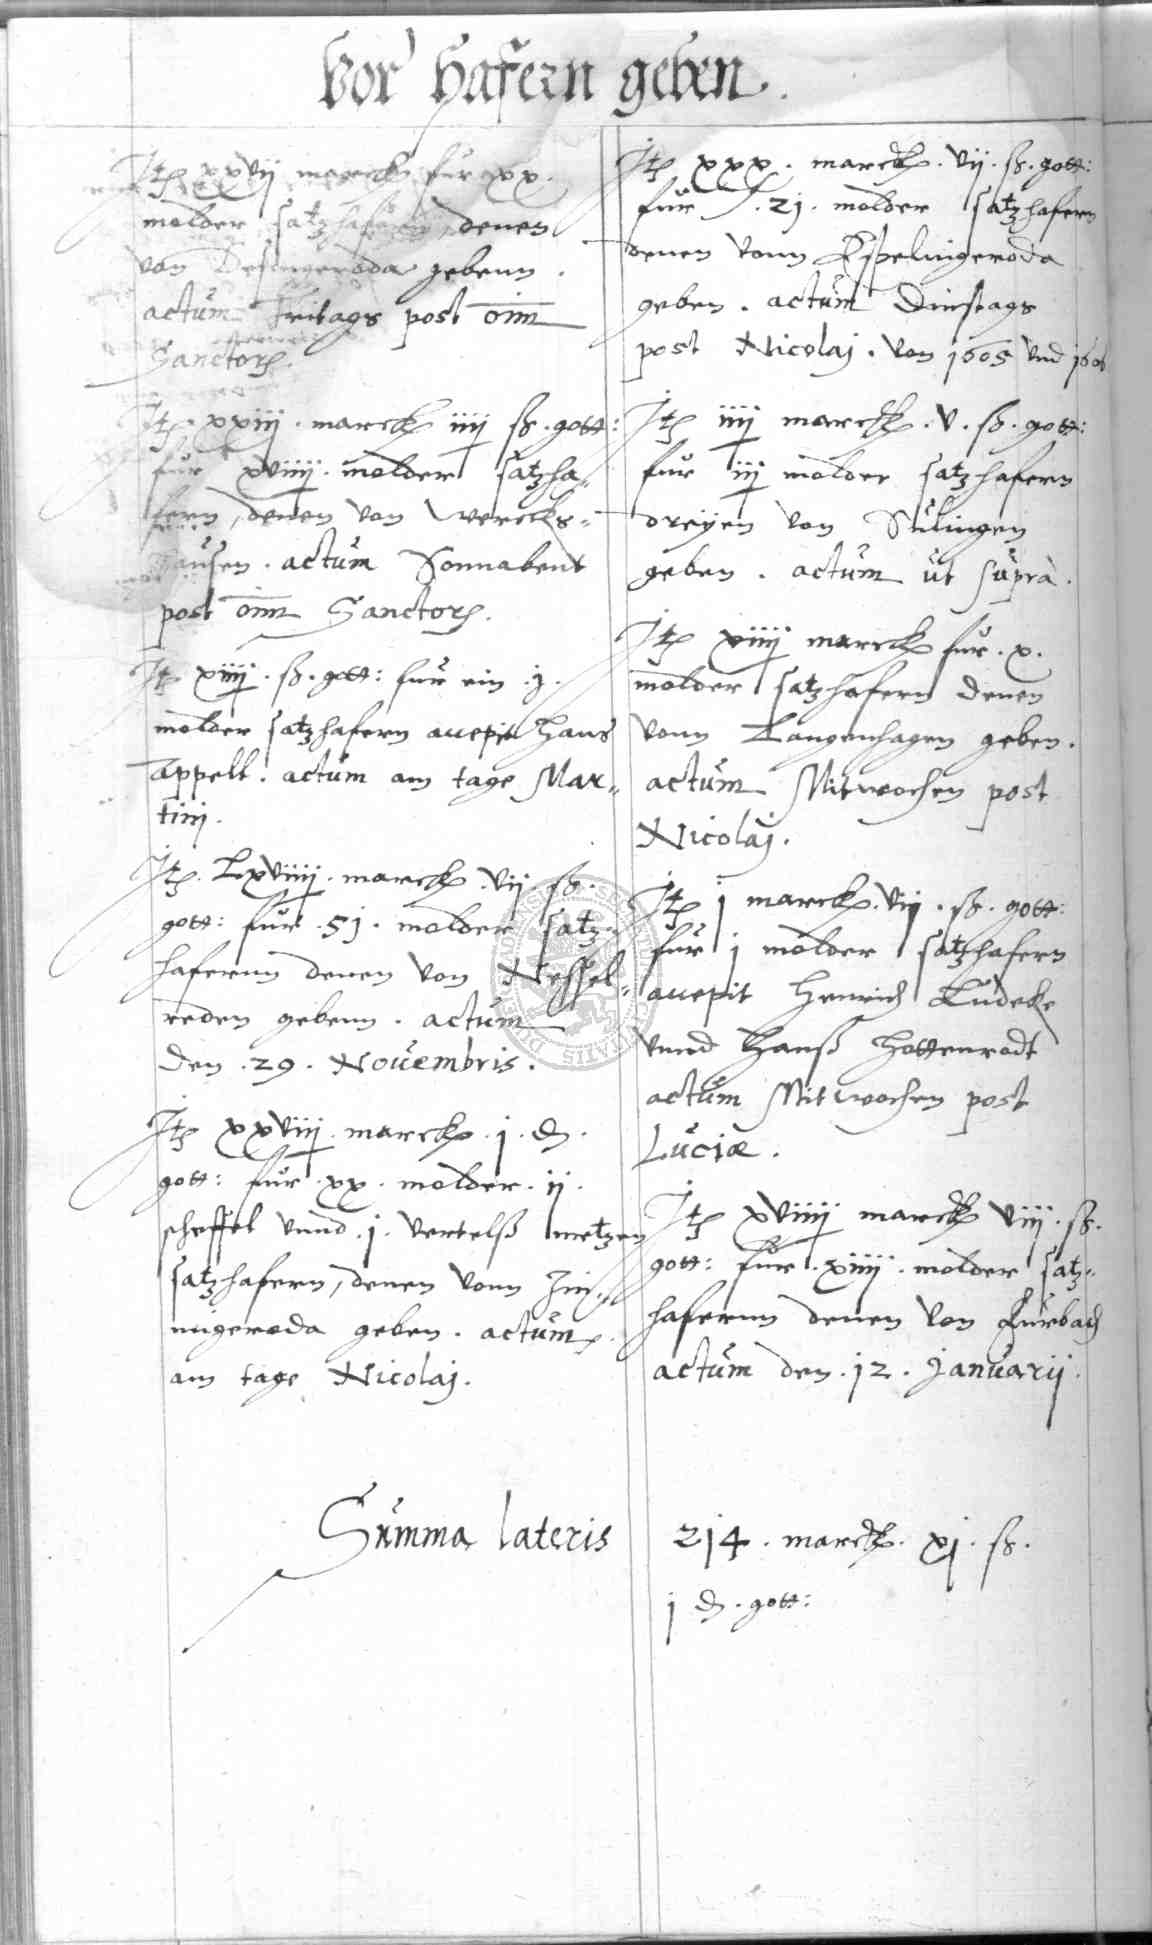 Vor Hafern geben.
Itē xxvij marck fur xx.
molder satzhafern, denen
von Desingeroda gebenn.
actum Fritags post oīm
Sanctorū.
Itē. xxiij. marck iiij ß. gott:
fur xviiij. molder satzha„
fern, denen von Wercks„
hausen. actum Sonnabent
post oīm Sanctorū.
Itē xiiij. ß. gott: fur ein .j.
molder satzhafern accepit Hans
Appell. actum am tage Mar„
tinj.
Itē. Lxviiij. marck. vij. ß.
gott: fur .51. molder satz„
hafernn denen von Nessel„
reden gebenn. actum
den .29. Novembris.
Itē xxviiij. marck. j. d.
gott: fur xx. molder. ij.
scheffel vnnd .j. vertelß metzen
satzhafern, denen vonn Im„
migeroda geben. actum
am tage Nicolaj.
Itē xxx. marck. vij. ß. gott:
fur .21. molder satzhafern
denen vonn Espelingeroda
geben. actum Dinstags
post Nicolaj. von 1605 vnd 1606
Itē iiij marck. v. ß. gott:
fur iij molder satzhafern
dreÿen von Sulingen
geben. actum ut supra.
Itē xiiij marck fur. x.
molder satzhafern denen
vonn Langenhagen geben.
actum Mitwochen post
Nicolaj.
Itē j marck. vij. ß. gott:
fur j molder satzhafern
accepit Henrich Ludeke
vnnd Hanß Hottenrodt
actum Mitwochen post
Luciæ.
Itē xviiij marck viij. ß.
gott: fur. xiiij. molder satz„
hafernn denen von Furbach
actum den. 12. Januarij.
Summa lateris 214. marck. xj. ß.
j d. gott: